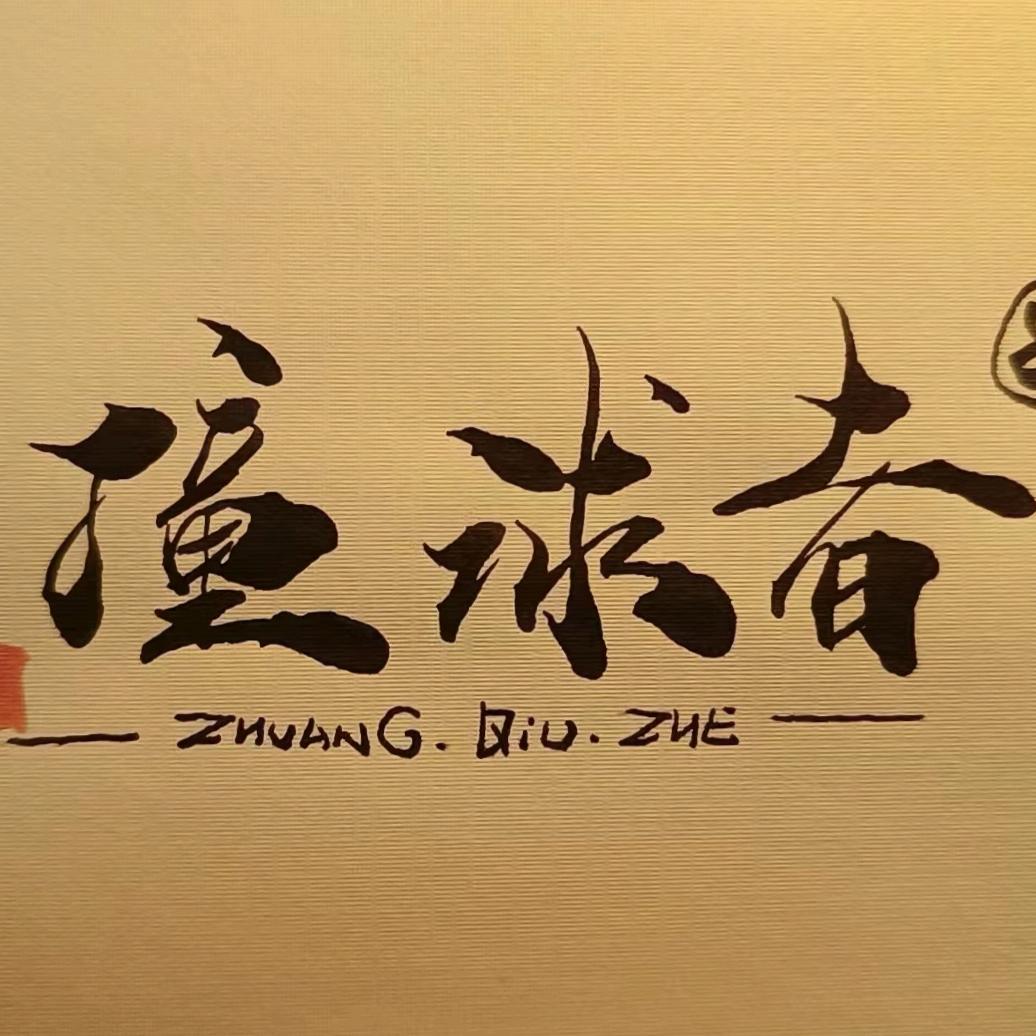 撞球者
ZHUANG. QiU. ZHE